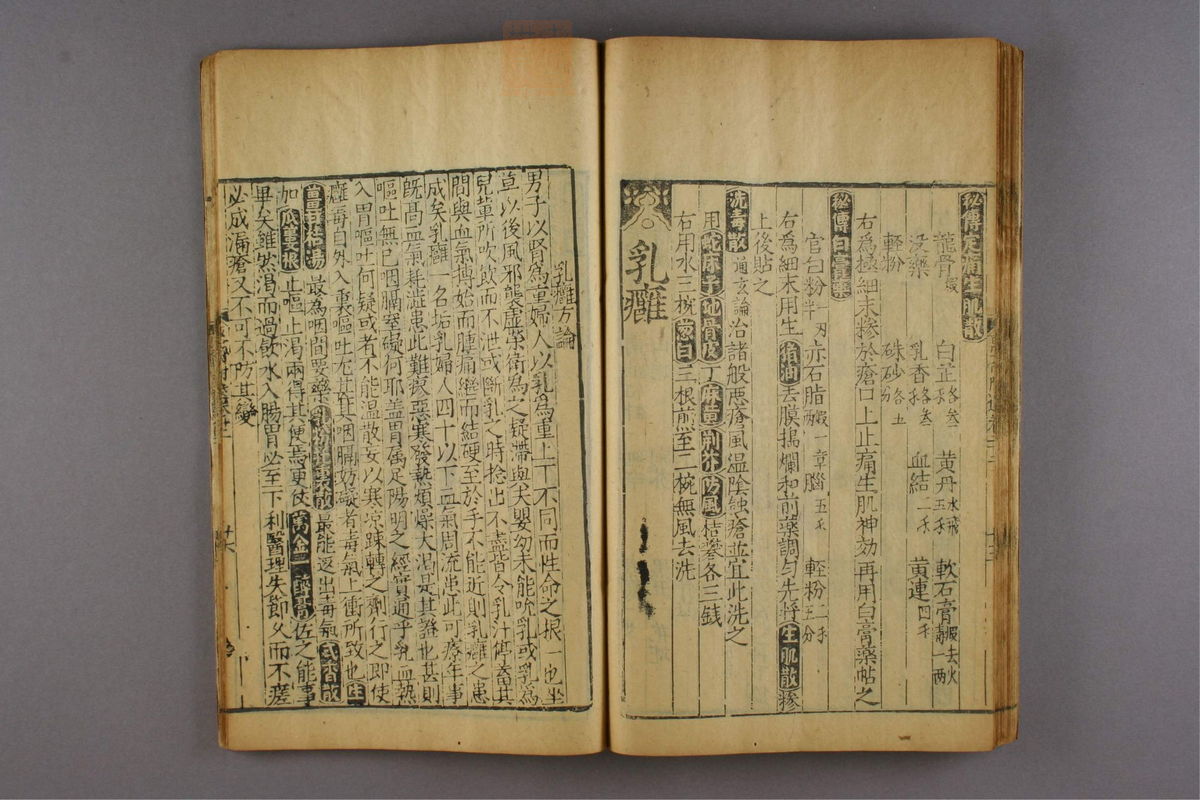 秘傳定痛生肌散
龍骨煅 白芷各叁 黃丹水飛 軟石膏煅去火
没藥 乳香各叁 血結二 黃連四
輕粉 硃砂各五
右爲極細末摻於瘡口上止痛生肌神効再用白膏藥帖之
秘傳白膏藥
官白粉半 赤石脂煅一 章腦五 輕粉二
右爲細末用生猪油去膜搗爛和前藥調勻先將生肌散摻
上後貼之
洗毒散 通玄論治諸般惡瘡風温陰蝕瘡並宜此洗之
用蛇床子地骨皮丁麻黃荆芥防風桔礬各三錢
右用水三椀葱白三根煎至二椀無風去洗
乳癰
乳癰方論
男子以腎爲重婦人以乳爲重上下不同而性命之根一也坐
草以後風邪襲虛榮衛爲之疑滯與夫嬰幼未能吮乳或乳爲
兒輩所吹飲而不泄或斷乳之時捻出不盡皆令乳汁停畜其
間與血氣搏始而腫痛繼而結硬至於手不能近則乳癰之患
成矣乳癰一名垢乳婦人四十以下血氣周流患此可療年事
既高血氣耗澁患此難瘳惡寒發熱煩燥大渴是其證也甚則
嘔吐無已咽膈窒礙何耶盖胃属足陽明之經實通乎乳血熱
入胃嘔吐何疑或者不能温散女以寒凉踈轉之劑行之即使
癰毒自外入裏嘔吐尤甚其咽膈妨礙者毒氣上衝所致也生
薑甘桔湯最爲咽間要藥乳粉托裏散最能返出毒氣或香散
加瓜蔞根止嘔止渴兩得其便焉更使萬金一醉膏佐之能事
畢矣雖然渴而過飲水入腸胃必至下利醫理失節久而不瘥
必成漏瘡又不可不防其變